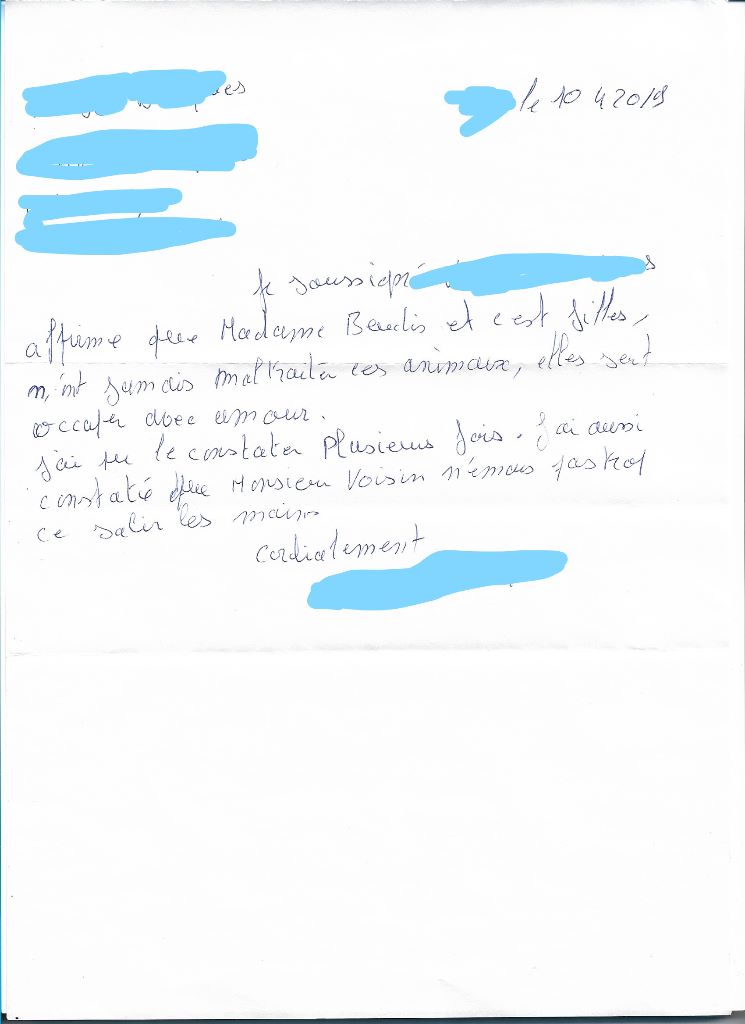 le 10 4 2019
Je soussigné
affirme que Madame Beudis et c'est filles,
n'ont jamais maltraiter ces animaux, elles sont
occuper avec amour.
j'ai pu le constater plusieurs fois. J'ai aussi
constaté que Monsieur Voisin n'émais pas trop
ce salir les mains
cordialement